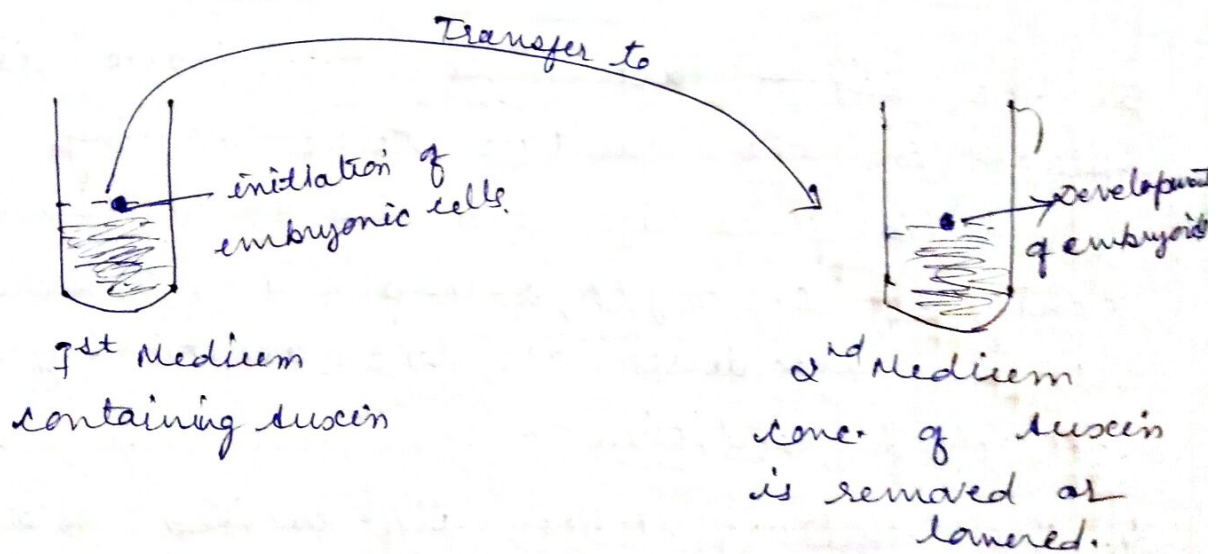 Transfer to
initiation of
embryonic cells.
Development
of embryoids
1st Medium
containing Auxin
2nd Medium
conc. of Auxin
is removed or
lowered.